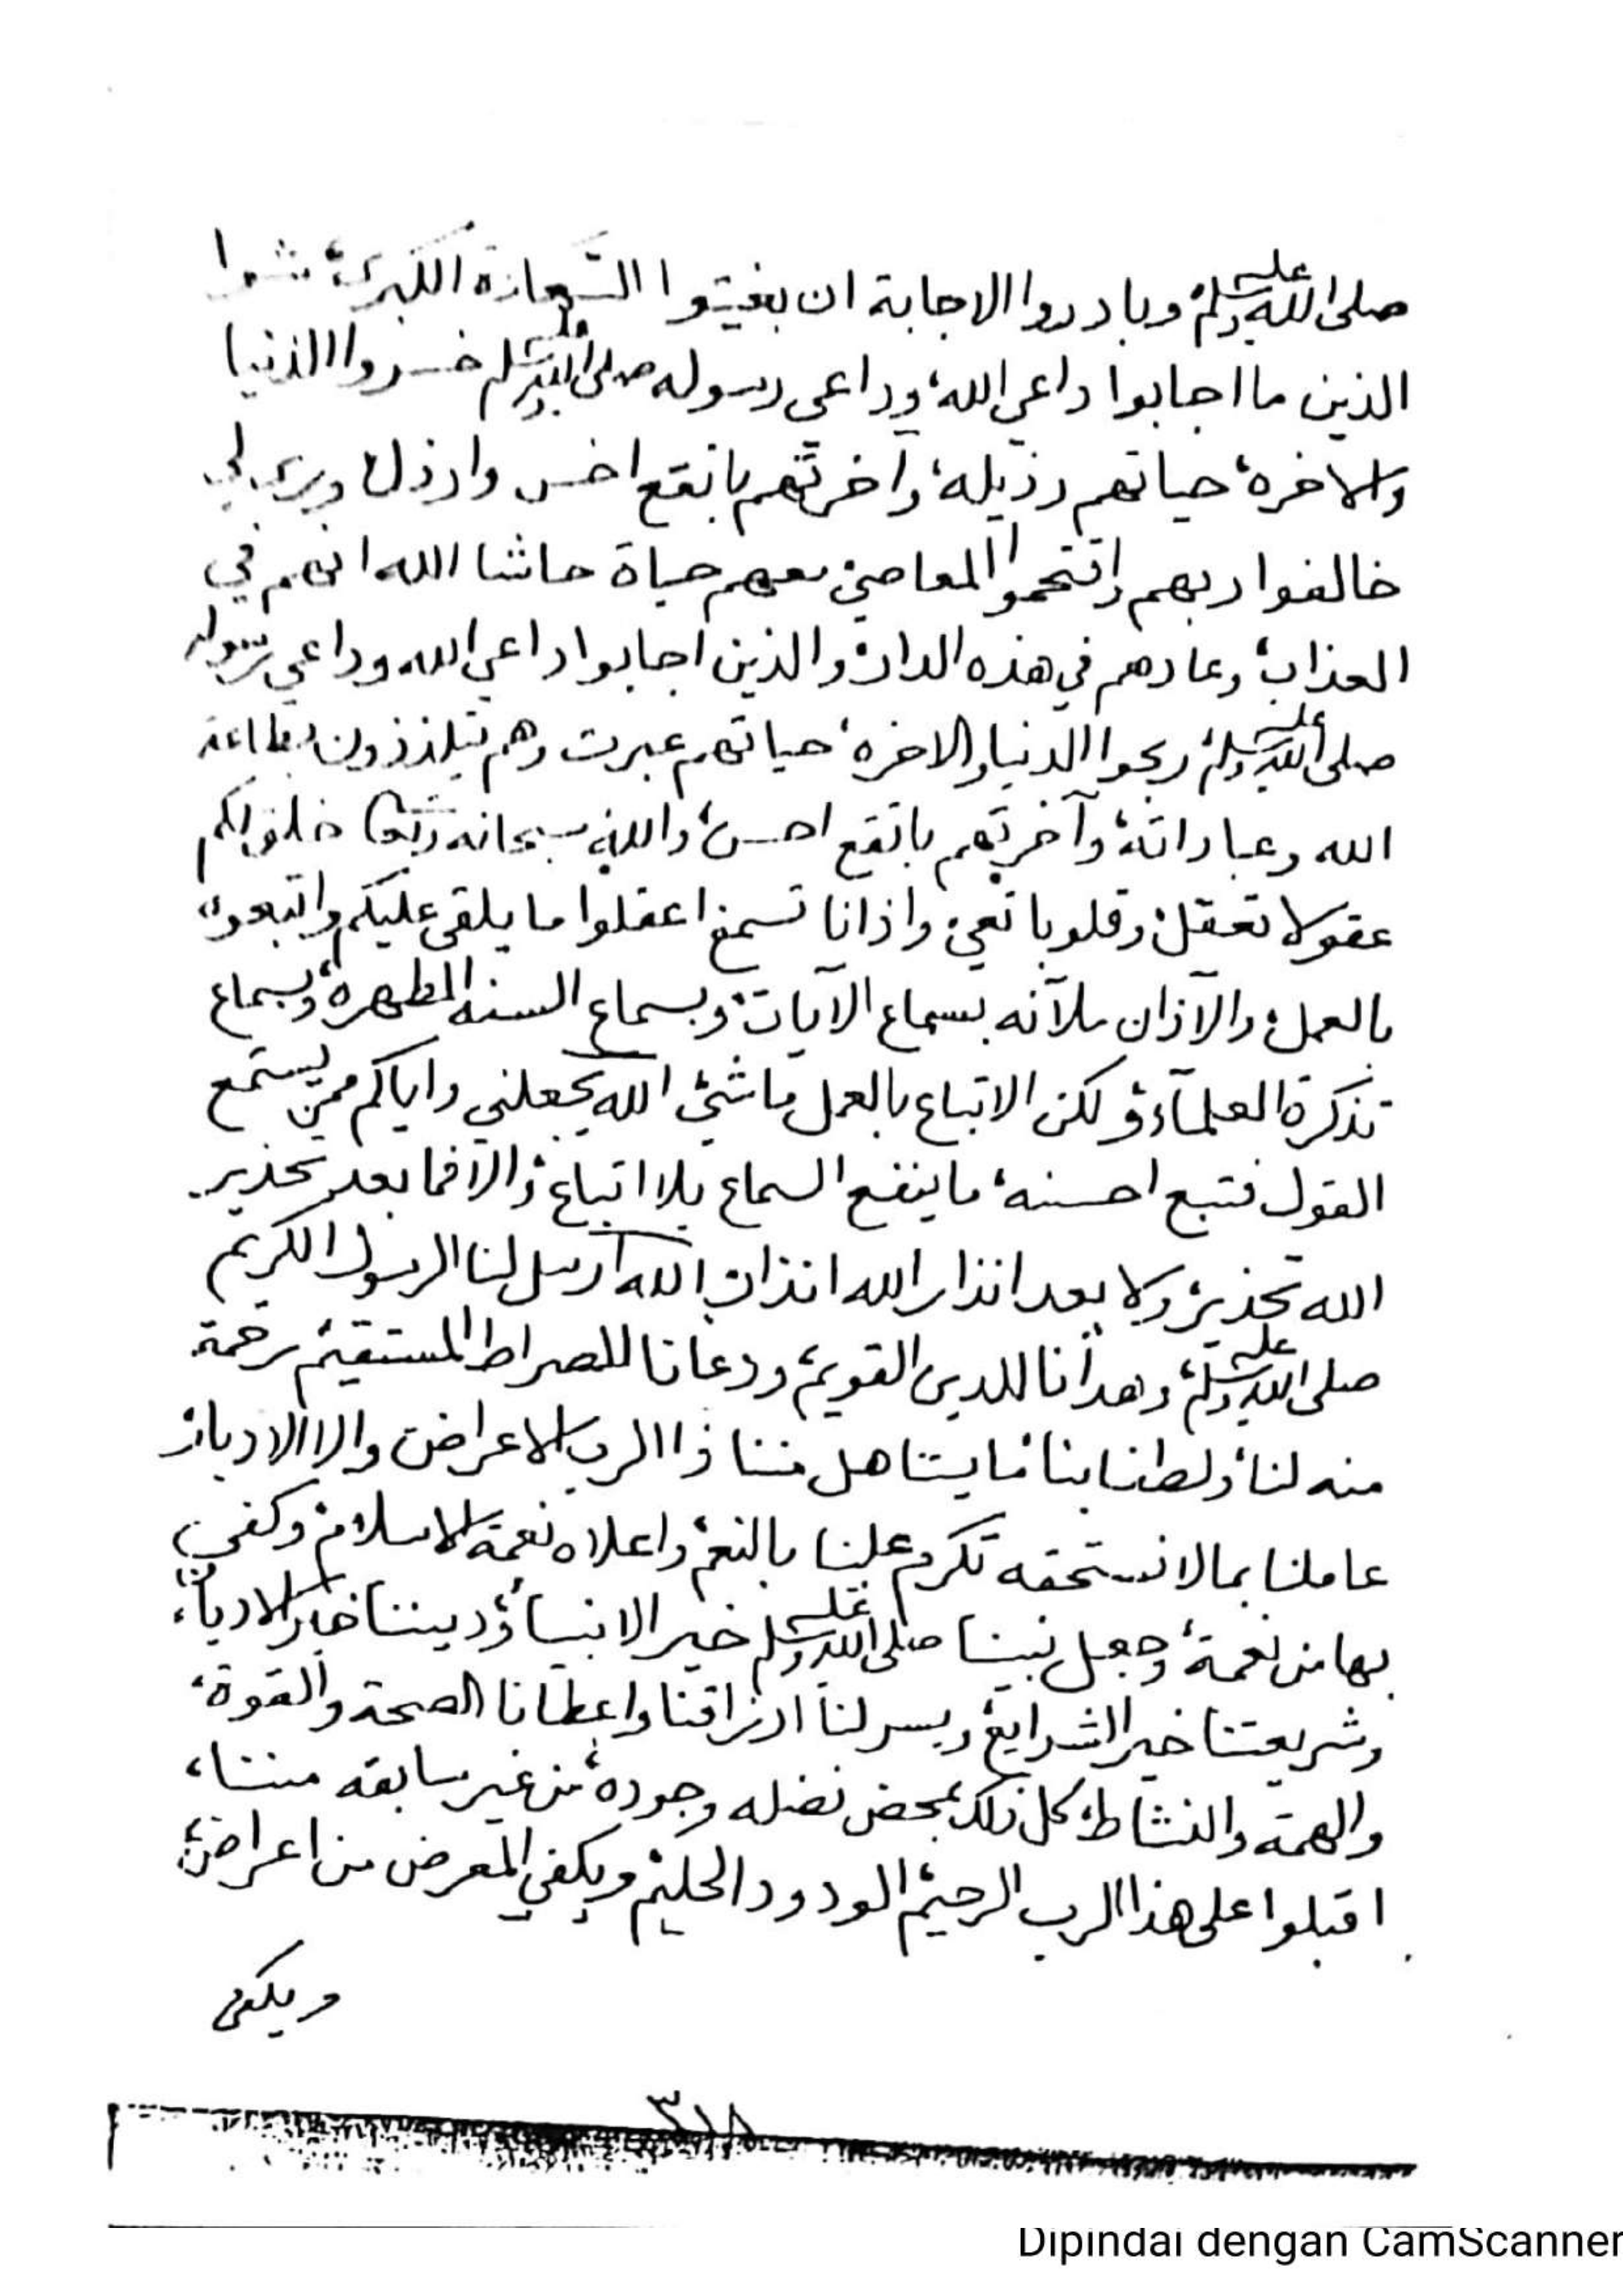 صلى الله عليه وسلم وبادروا الاجابة ان بغيتوا السعادة الكبرى، شوا
الذين ما اجابوا داعي الله، وداعي رسوله صلى الله عليه وسلم خسروا الدنيا
والاخرة، حياتهم رذيله، وآخرتهم باتقع اخس وارذل،
خالفوا ربهم واقتحموا المعاصي معهم حياة حاشا الله انهم في
العذاب، وعادهم في هذه الدار، والذين اجابوا داعي الله وداعي رسوله
صلى الله عليه وسلم ربحوا الدنيا والاخره، حياتهم عبرت وهم يتلذذون بطاعة
الله وعباداته، وآخرتهم باتقع احسن، والله سبحانه وتعالى خلق لكم
عقولا تعقل، وقلوبا تعي، واذانا تسمع، اعقلوا ما يلقى عليكم واتبعوه
بالعمل، والآذان ملآنه بسماع الآيات، وبسماع السنه المطهره، وبسماع
تذكرة العلمآء، ولكن الاتباع بالعمل ماشي، الله يجعلني واياكم ممن يستمع
القول فتبع احسنه، ما ينفع السماع بلا اتباع، والآ فما بعد تحذير
الله تحذير، ولا بعد انذار الله انذار، الله ارسل لنا الرسول الكريم
صلى الله عليه وسلم، وهدانا للدين القويم، ودعانا للصراط المستقيم، رحمة
منه لنا، ولطفا بنا، ما يستاهل مننا ذا الرب الاعراض والا الادبار،
عاملنا بما لا نستحقه تكرم علينا بالنعم، واعلاه نعمة الاسلام، وكفى
بها من نعمة، وجعل نبينا صلى الله عليه وسلم خير الانبياء، وديننا خير الاديان،
وشريعتنا خير الشرايع، ويسر لنا ارزاقنا واعطانا الصحة والقوة،
والهمة والنشاط، كل ذلك بمحض فضله وجوده، من غير سابقه مننا،
اقبلوا على هذا الرب الرحيم، الودود الحليم، ويكفي المعرض من اعراض،
ويكفى
٣١٨
Dipindai dengan CamScanner